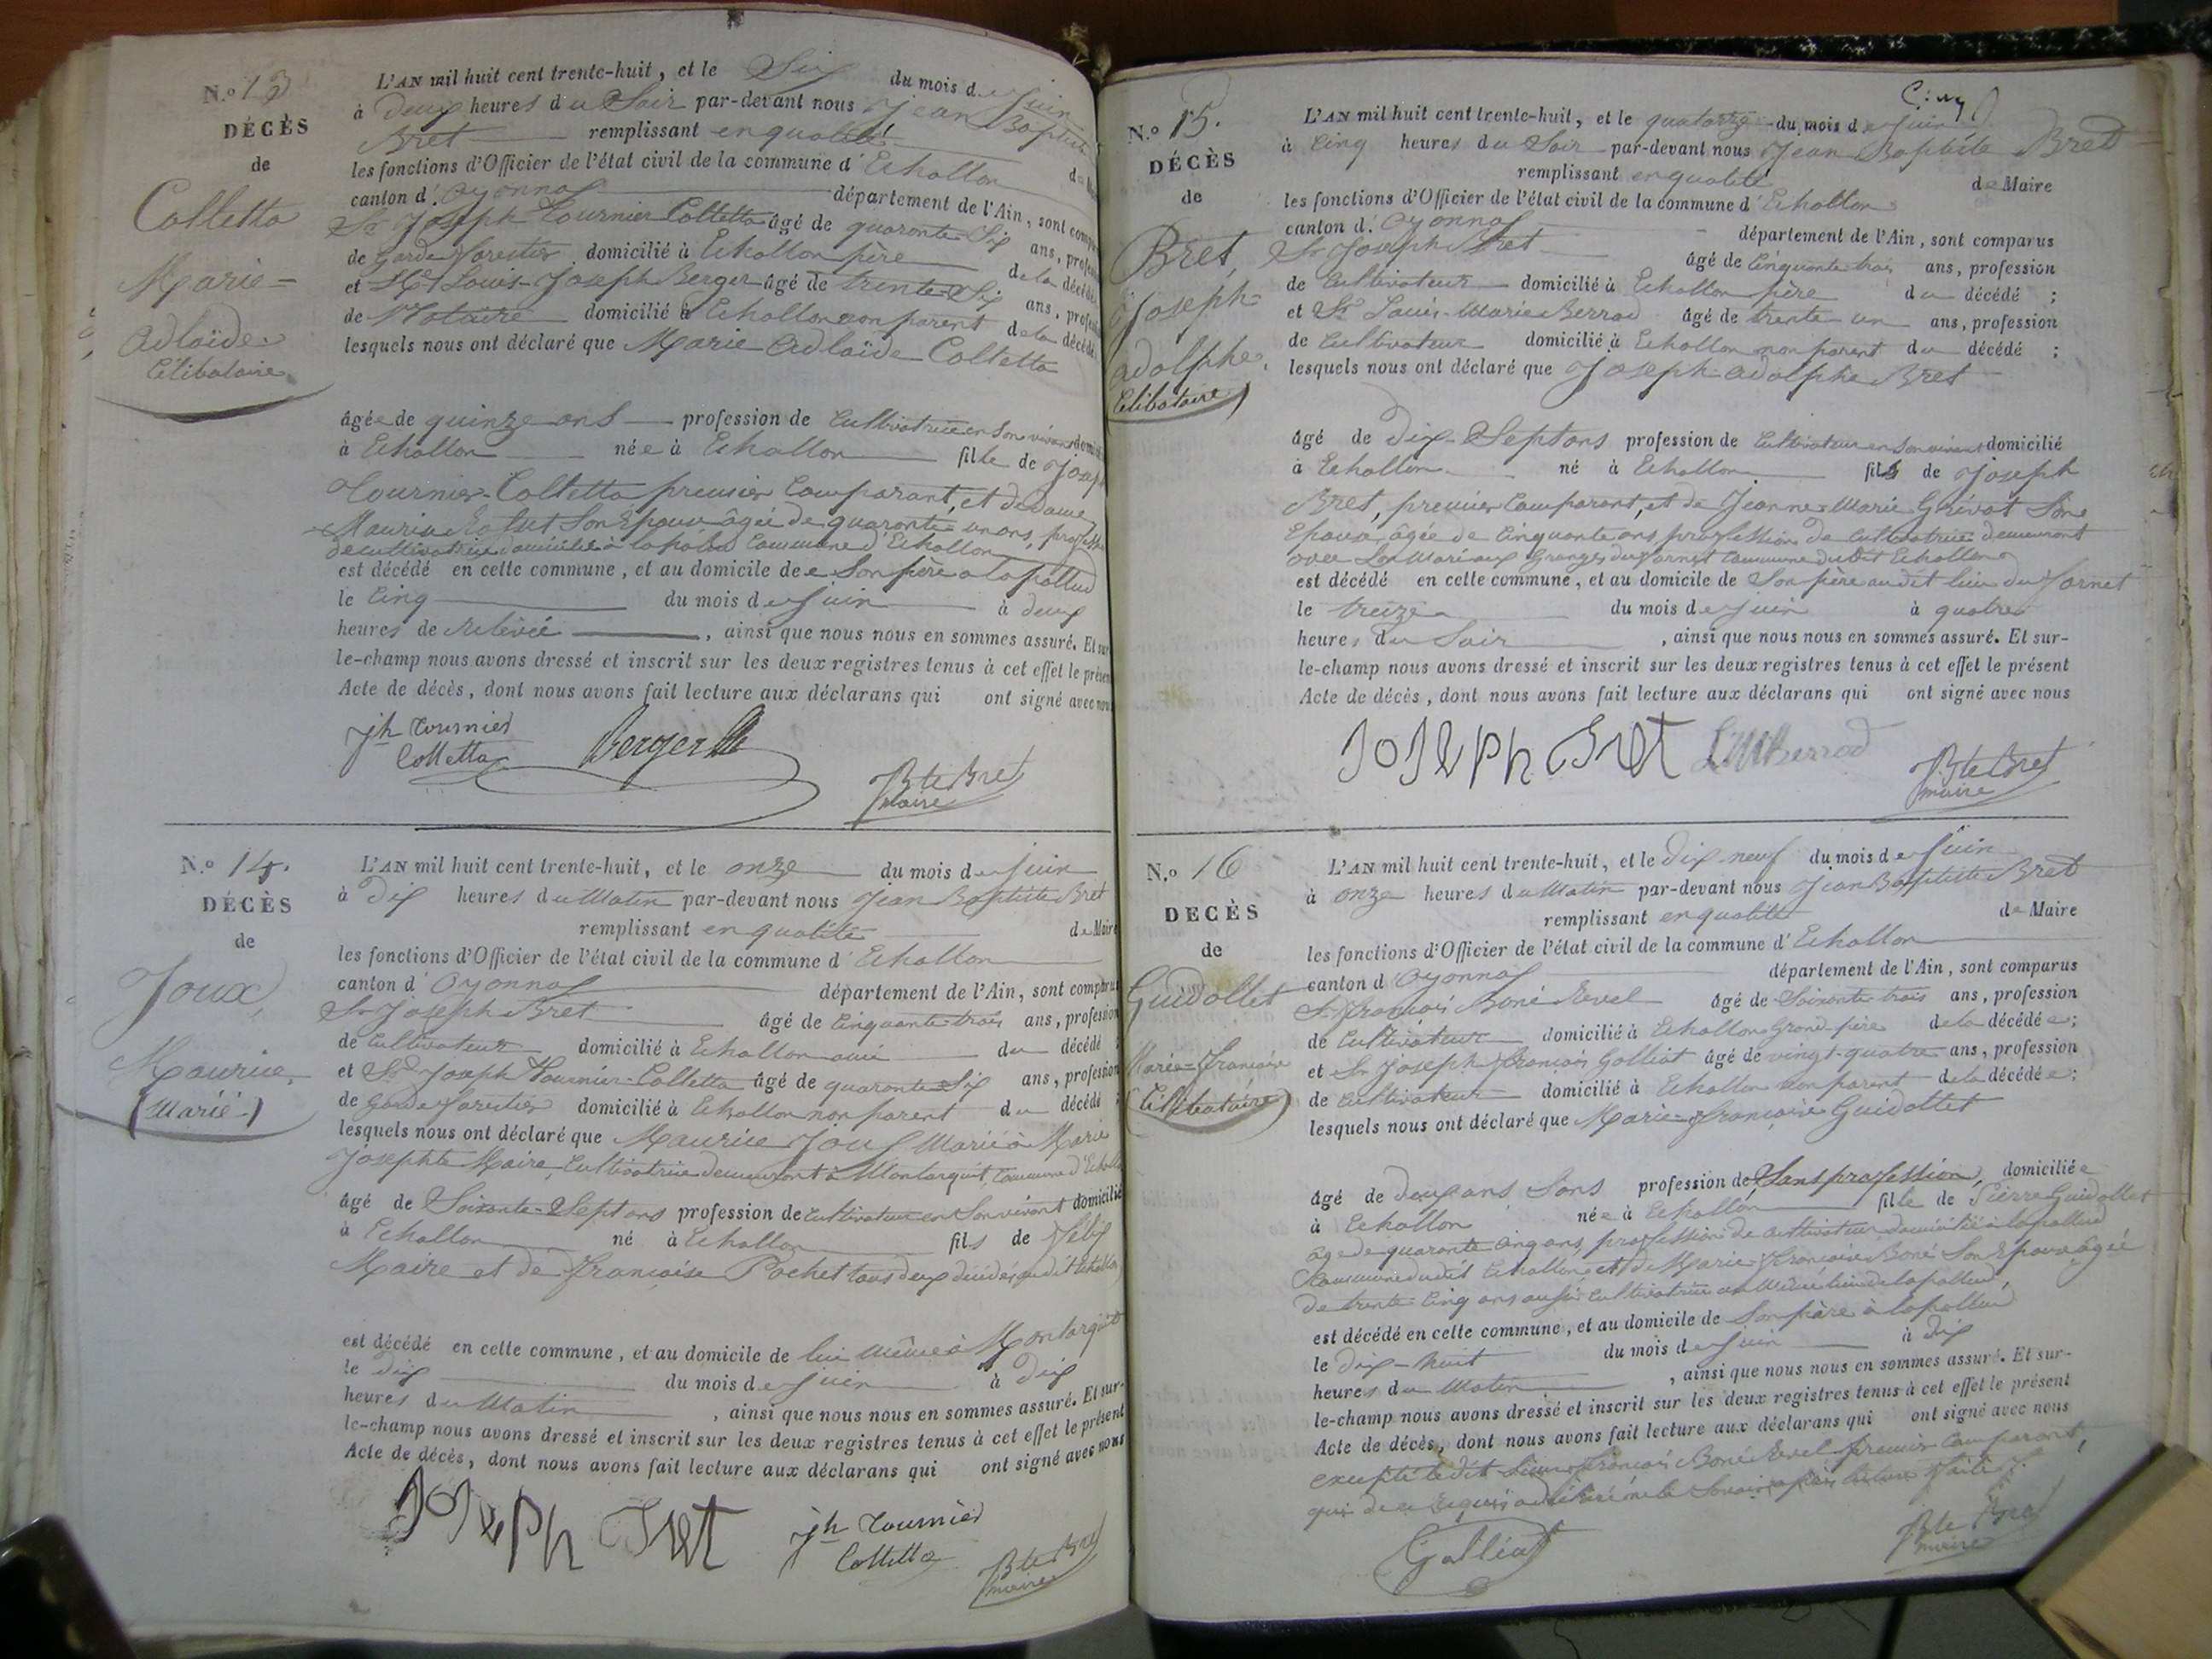 N.o 13
DÉCÈS
de
Colletta
Marie=
adlaïde
Célibataire
L'AN mil huit cent trente-huit, et le Six du mois de Juin
à deux heures du Soir par-devant nous Jean Baptiste
Bret remplissant en qualité de
les fonctions d'Officier de l'état civil de la commune d'Echallon
canton d'Oyonnax département de l'Ain, sont
Sr. Joseph Tournier Colletta âgé de quarante Six ans,
de Garde forestier domicilié à Echallon père de la
et Me Louis-Joseph Berger âgé de trente Six ans,
de Notaire domicilié à Echallon non parent de la
lesquels nous ont déclaré que Marie adlaïde Colletta
âgée de quinze ans profession de Cultivatrice en Son vivant
à Echallon née à Echallon fille de Joseph
Tournier-Colletta premier Comparant, et de dame
Son Epouse âgée de quarante un ans,
de cultivatrice domiciliée à lapallud Commune d'Echallon
est décédé en cette commune, et au domicile de Son père a lapallud
le Cinq du mois de Juin à deux
heures de relevée, ainsi que nous nous en sommes assuré. Et sur
le-champ nous avons dressé et inscrit sur les deux registres tenus à cet effet le
Acte de décès, dont nous avons fait lecture aux déclarans qui ont signé avec nous
Jh Tournier
Colletta
Berger
Bte Bret
maire
N.o 14.
DÉCÈS
de
Joux,
Maurice,
(Marié)
L'AN mil huit cent trente-huit, et le onze du mois de Juin
à Dix heures du Matin par-devant nous Jean Baptiste Bret
remplissant en qualité de Maire
les fonctions d'Officier de l'état civil de la commune d'Echallon
canton d'Oyonnax département de l'Ain, sont comparus
Sr Joseph Bret âgé de Cinquante trois ans, profession
de Cultivateur domicilié à Echallon ami du décédé ;
et Sr Joseph Tournier-Colletta âgé de quarante Six ans, profession
de Garde forestier domicilié à Echallon non parent du décédé ;
lesquels nous ont déclaré que Maurice Joux Marié à Marie
Josephte Maire, Cultivatrice demeurant à Montarquit, Commune d'Echallon
âgé de Soixante-Sept ans profession de Cultivateur en Son vivant domicilié
à Echallon né à Echallon fils de Félix
Maire et de françoise Pochet tous deux décédés audit Echallon
est décédé en cette commune, et au domicile de lui même à Montarquit
le dix du mois de Juin à dix
heures du Matin, ainsi que nous nous en sommes assuré. Et sur-
le-champ nous avons dressé et inscrit sur les deux registres tenus à cet effet le présent
Acte de décès, dont nous avons fait lecture aux déclarans qui ont signé avec nous
Joseph Bret
Jh Tournier
Colletta
Bte Bret
maire
Cinq
N.o 15.
DÉCÈS
de
Bret,
Joseph
adolphe,
Célibataire)
L'AN mil huit cent trente-huit, et le quatorze du mois de Juin
à Cinq heures du Soir par-devant nous Jean Baptiste Bret
remplissant en qualité de Maire
les fonctions d'Officier de l'état civil de la commune d'Echallon
canton d'Oyonnax département de l'Ain, sont comparus
Sr Joseph Bret âgé de Cinquante trois ans, profession
de Cultivateur domicilié à Echallon père du décédé ;
et Sr Louis-Marie Berrod âgé de trente un ans, profession
de Cultivateur domicilié à Echallon non parent du décédé ;
lesquels nous ont déclaré que Joseph adolphe Bret
âgé de Dix-Sept ans profession de Cultivateur en Son vivant domicilié
à Echallon né à Echallon fils de Joseph
Bret, premier Comparant, et de Jeanne Marie Grivot Son
Epouse, âgée de Cinquante ans profession de Cultivatrice demeurant
avec Son Mari aux Granges du Commune dudit Echallon
est décédé en cette commune, et au domicile de Son père audit lieu du
le treize du mois de Juin à quatre
heures du Soir, ainsi que nous nous en sommes assuré. Et sur-
le-champ nous avons dressé et inscrit sur les deux registres tenus à cet effet le présent
Acte de décès, dont nous avons fait lecture aux déclarans qui ont signé avec nous
Joseph Bret
LMBerrod
Bte Bret
maire
N.o 16
DECÈS
de
Guidollet
Marie=françoise
(Célibataire)
L'AN mil huit cent trente-huit, et le dix-neuf du mois de Juin
à onze heures du Matin par-devant nous Jean Baptiste Bret
remplissant en qualité de Maire
les fonctions d'Officier de l'état civil de la commune d'Echallon
canton d'Oyonnax département de l'Ain, sont comparus
Sr françois Boné Revel âgé de Soixante trois ans, profession
de Cultivateur domicilié à Echallon Grand-père de la décédée;
et Sr Joseph françois Golliat âgé de vingt-quatre ans, profession
de Cultivateur domicilié à Echallon non parent de la décédée;
lesquels nous ont déclaré que Marie-françoise Guidollet
âgé de deux ans Sans profession de Sans profession, domiciliée
à Echallon née à Echallon fille de Pierre Guidollet
âgé de quarante Cinq ans, profession de cultivateur domicilié à lapallud
Commune dudit Echallon, et de Marie françoise Boné Son Epouse âgée
de trente Cinq ans aussi Cultivatrice au même lieu de lapallud,
est décédé en cette commune, et au domicile de Son père à lapallud
le dix-huit du mois de Juin à dix
heures du Matin, ainsi que nous nous en sommes assuré. Et sur-
le-champ nous avons dressé et inscrit sur les deux registres tenus à cet effet le présent
Acte de décès, dont nous avons fait lecture aux déclarans qui ont signé avec nous
excepté ledit Sieur françois Boné Revel premier Comparant,
qui de ce Requis a déclaré ne le Savoir après lecture faite
Golliat
Bte Bret
maire